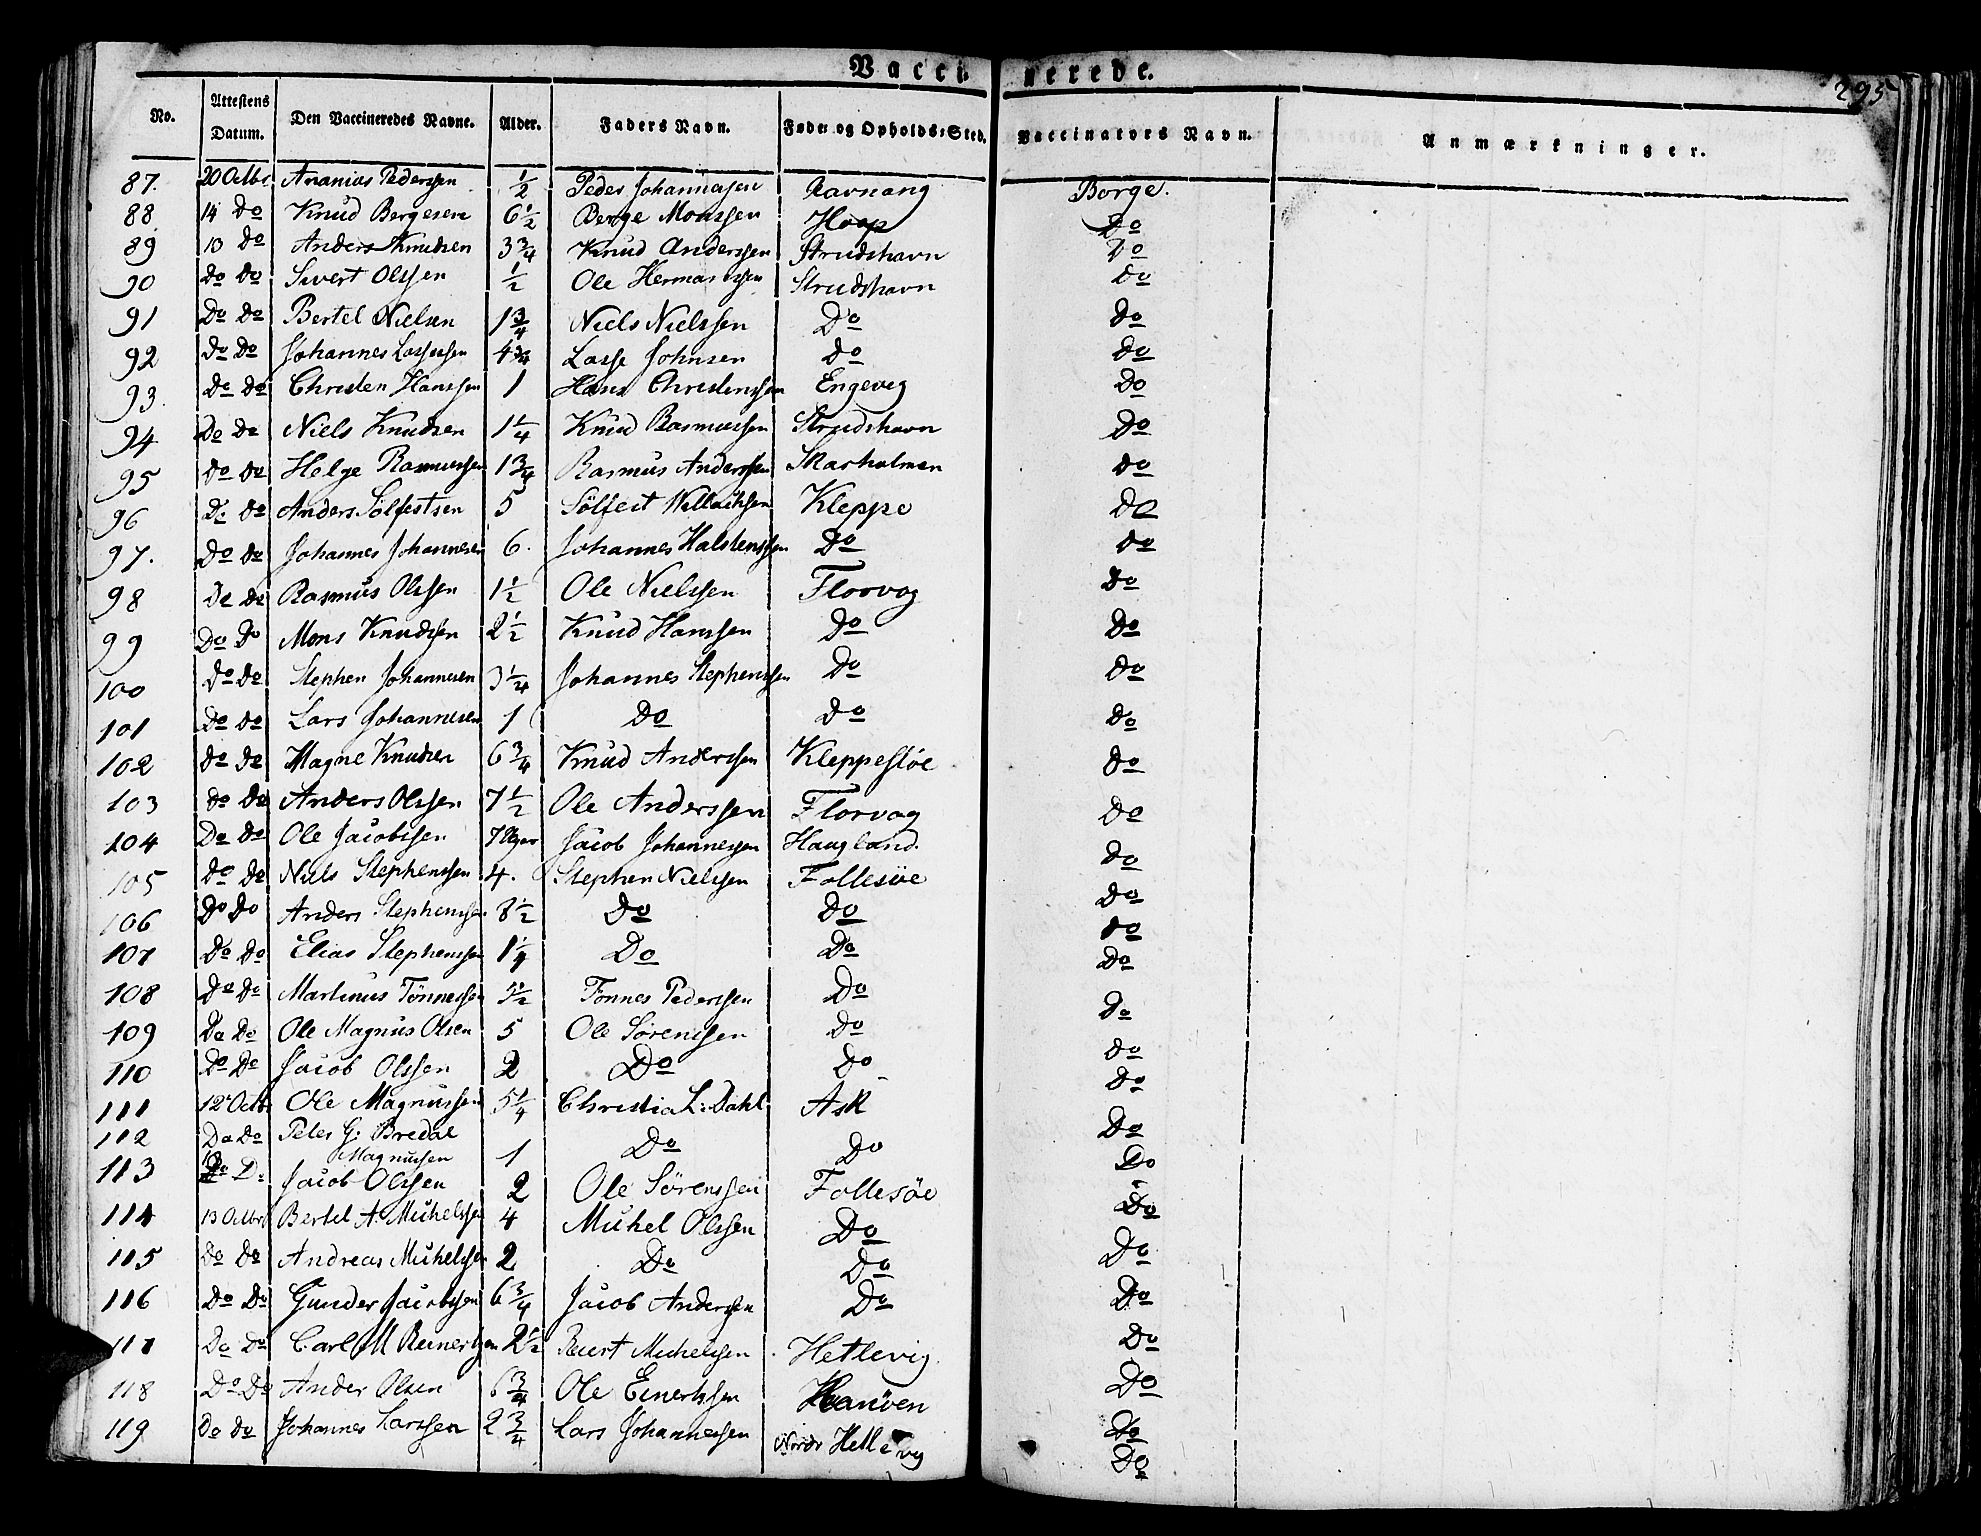 Vaccinerede.
295
No. Attestens Datum. Den Vaccineredes Navne. Alder. Faders Navn. Føde- og Opholds-Sted. Vaccinators Navn. Anmærkninger.
87. 20 Octbr Ananias Pederssen ½ Peder Johannessen Ravnang Borge.
88. 14 Do Knud Bergesen 6½ Berge Monssen Hop Do
89 13 Do Anders Knudsen 3¾ Knud Anderssen Strudshavn Do
90 Do Do Sivert Olssen ½ Ole Hermanssen Strudshavn Do
91 Do Do Bertel Nielsen 1¾ Niels Nielssen Do Do
92 Do Do Johannes Lassesen 4¾ Lasse Johnsen Do Do
93. Do Do Christen Hanssen 1 Hans Christenssen Engevig Do
94 Do Do Niels Knudsen 1¼ Knud Rasmussen Strudshavn Do
95 Do Do Helge Rasmussen 1¾ Rasmus Anderssen Skarholmen Do
96 Do Do Anders Solfestsen 5 Solfest Kleppe Do
97. Do Do Johannes Johannesen 6. Johannes Halstenssen Do Do
98 Do Do Rasmus Olssen 1½ Ole Nielssen Florvog Do
99 Do Do Mons Knudssen 2½ Knud Hanssen Do Do
100 Do Do Stephen Johannesen 3¼ Johannes Stephenssen Do Do
101 Do Do Lars Johannesen 1 Do Do Do
102 Do Do Magne Knudsen 6¾ Knud Anderssen Kleppesöe Do
103 Do Do Anders Olssen 7½ Ole Anderssen Florvog Do
104 Do Do Ole Jacobssen 7 Uger Jacob Johannessen Haugland. Do
105 Do Do Niels Stephenssen 4. Stephen Nielssen Follesöe Do
106 Do Do Anders Stephenssen 8½ Do Do Do
107 Do Do Elias Stephenssen 1¼ Do Do Do
108 Do Do Martinus Tönnessen 5½ Tönnes Pederssen Do Do
109 Do Do Ole Magnus Olsen 5 Ole Sörenssen Do Do
110 Do Do Jacob Olssen 2 Do Do Do
111 12 Octb Ole Magnussen 5¼ Christia L: Dahl Ask Do
112 Do Do Peter G: Bredal
Magnussen 1 Do Do Do
113 Do Jacob Olssen 2 Ole Sörenssen Follesöe Do
114 13 Octbr Bertel A. Michelssen 4 Michel Olssen Do Do
115 Do Do Andreas Michelssen 2 Do Do Do
116 Do Do Gunder Jacobssen 6¾ Jacob Andersen Do Do
117 Do Do Carl M Reinertsen 2½ Reiert Michelssen Hetlevig. Do
118 Do Do Ander Olsen 6¾ Ole Einertssen Hanöen Do
119 Do Do Johannes Larssen 2¾ Lars Johannessen Nordr Hetlevig Do